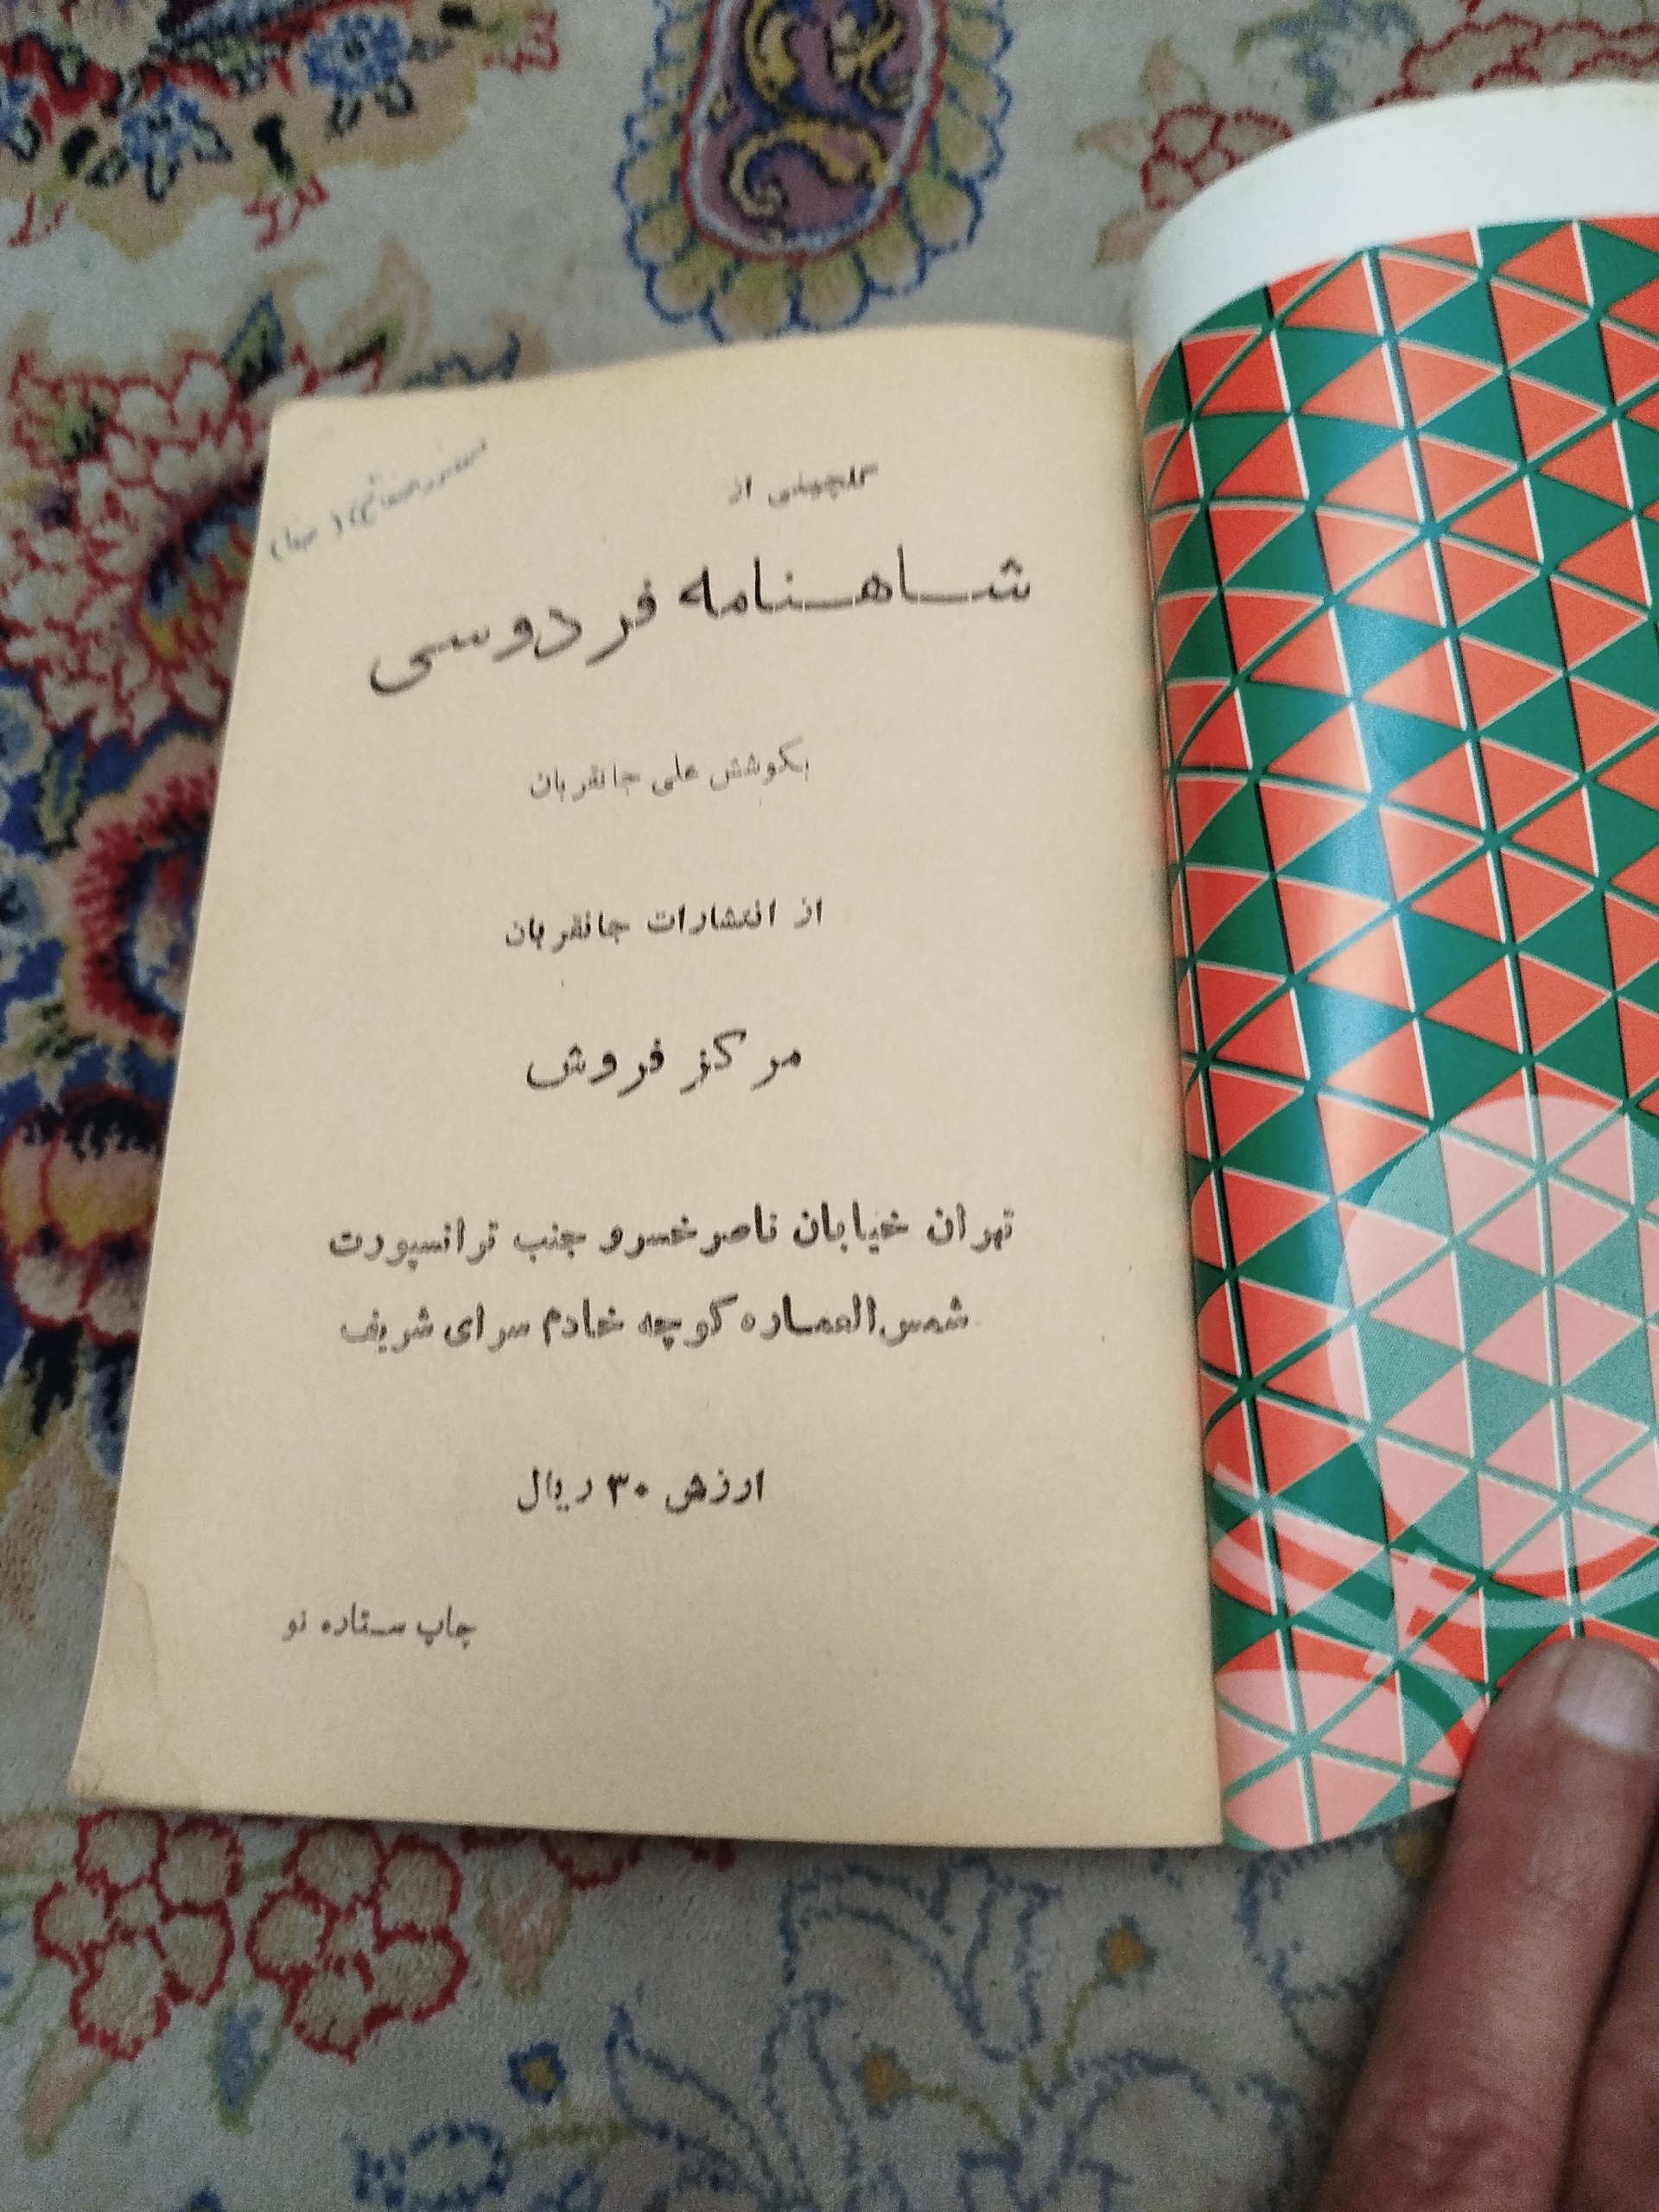 گلچینی از
شاهنامه فردوسی
بکوشش علی جانقربان
از انتشارات جانقربان
مرکز فروش
تهران خیابان ناصر خسرو جنب ترانسپورت
شمس‌العماره کوچه خادم سرای شریف
ارزش ۳۰ ریال
چاپ ستاره نو